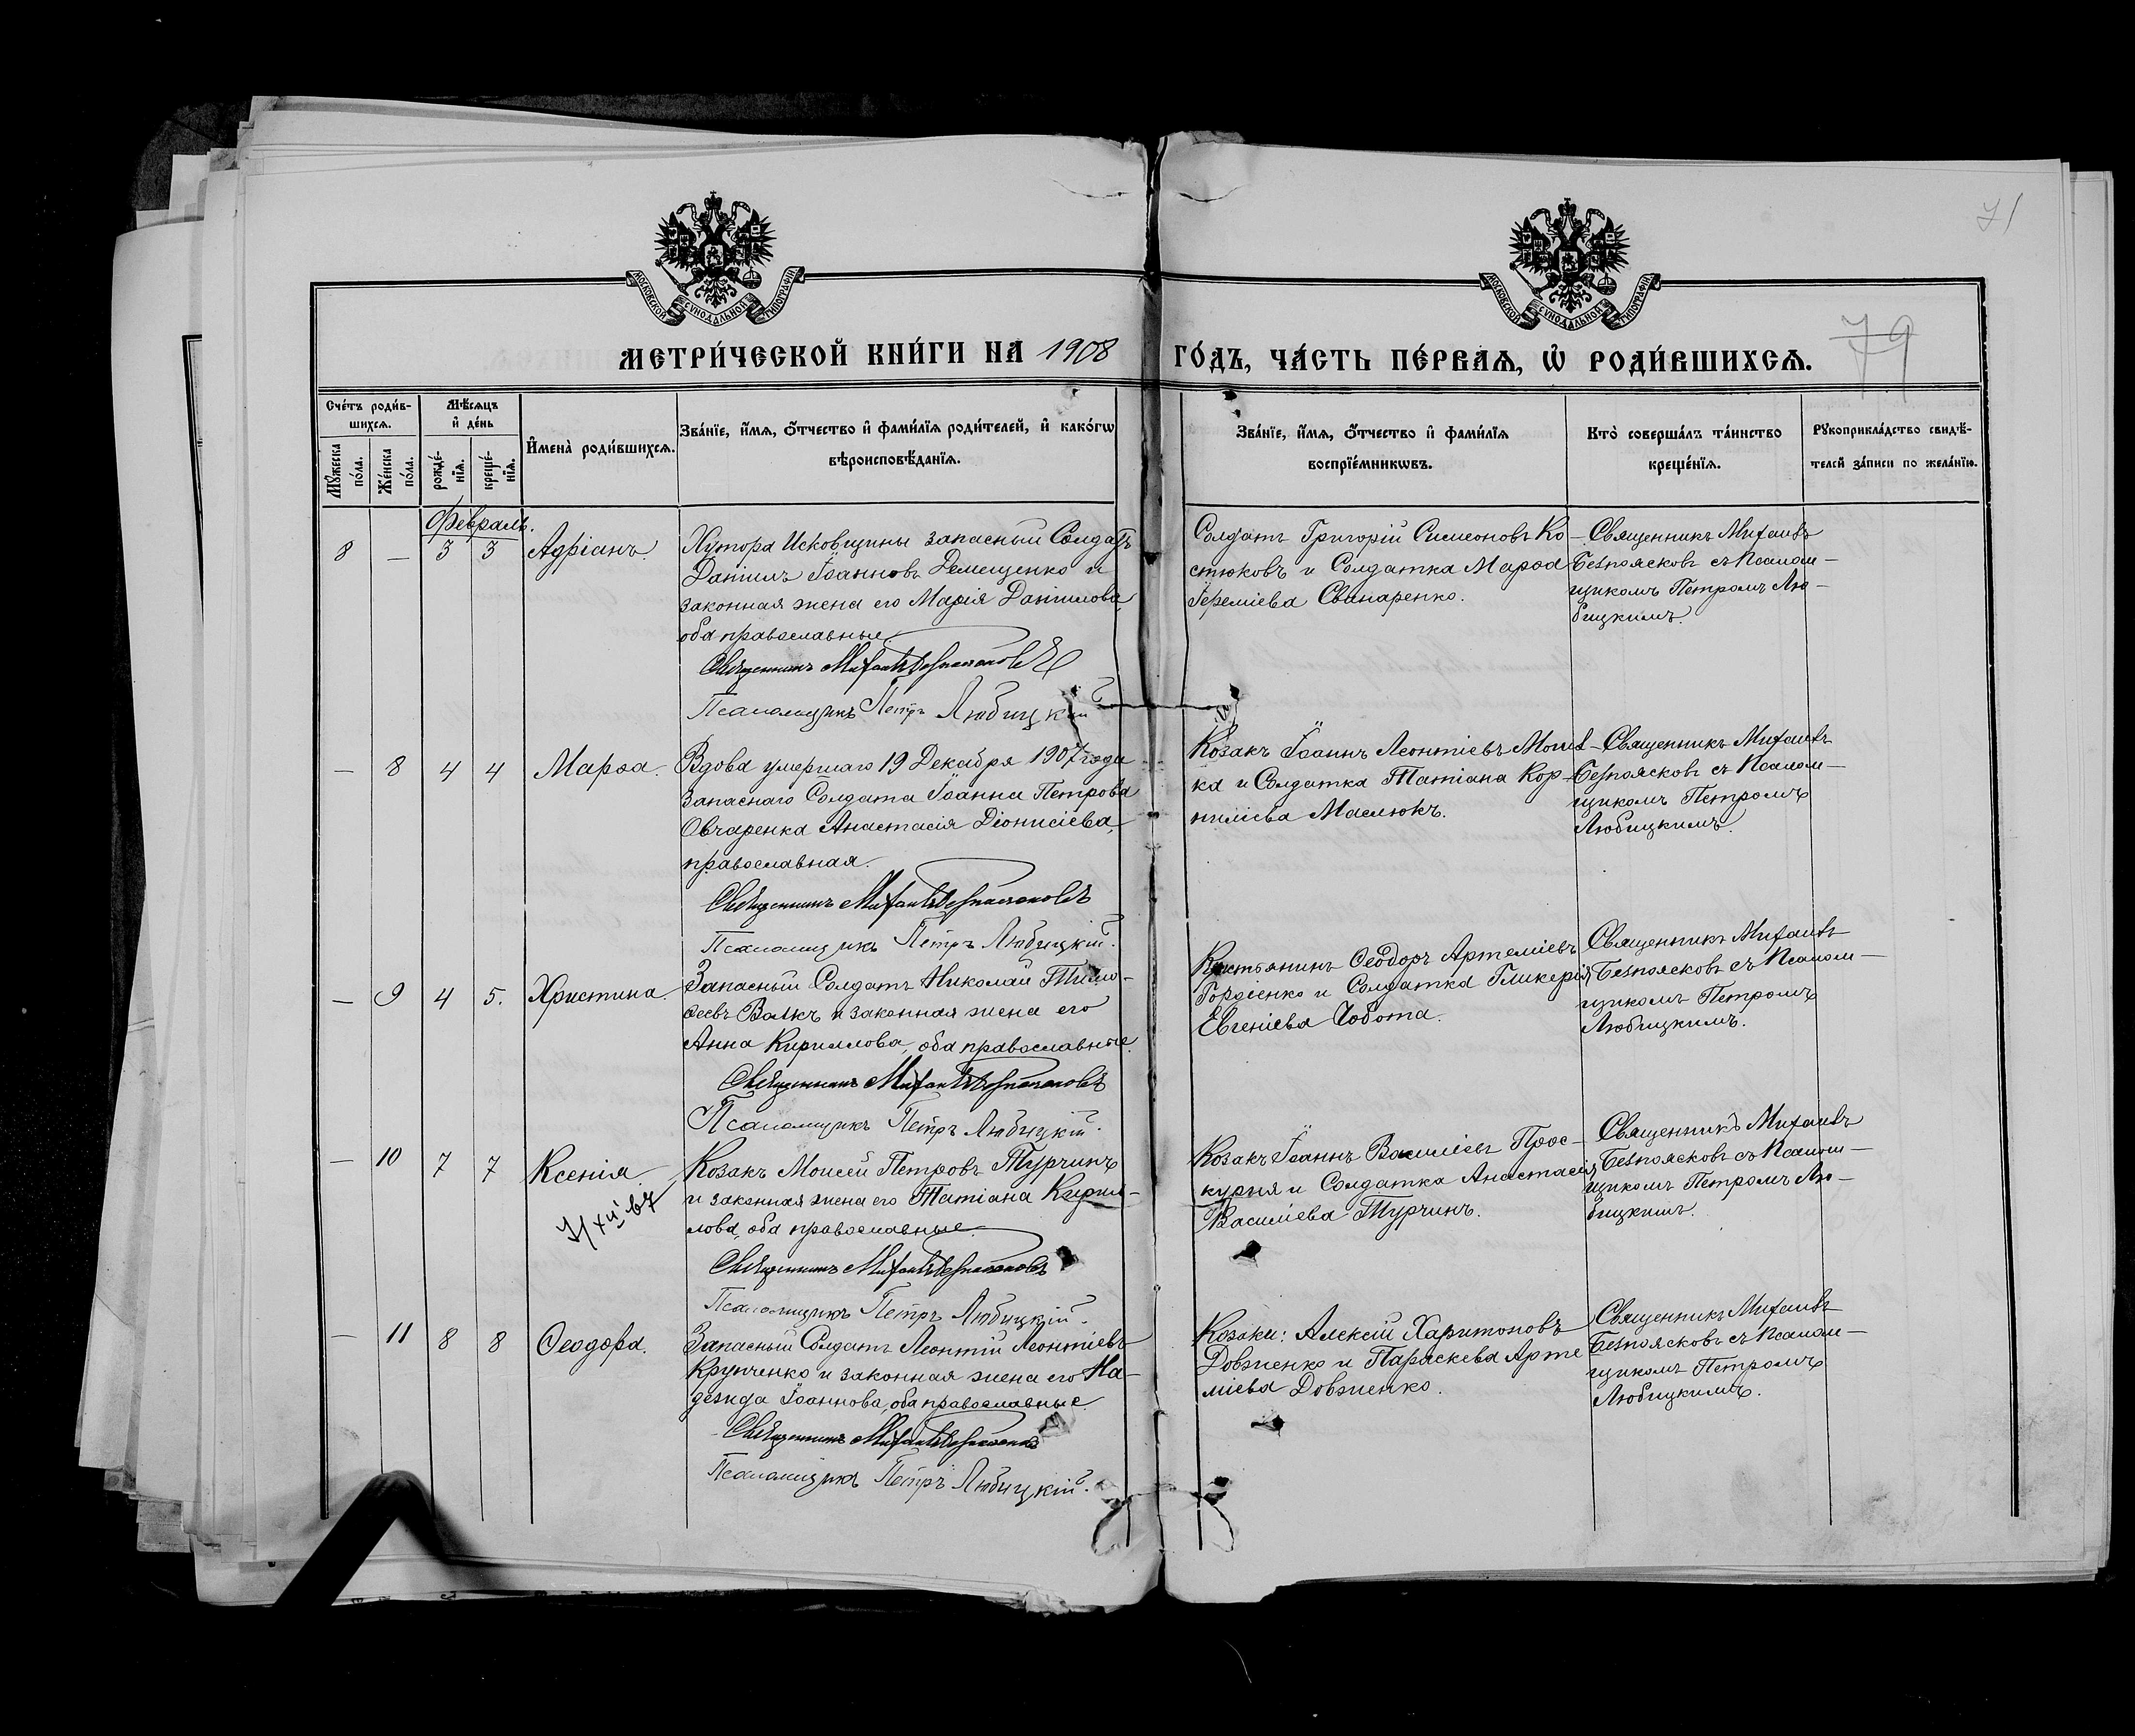 71
79
МОСКОВСКОЙ СѴНОДАЛЬНОЙ ТИПОГРАФІИ
МОСКОВСКОЙ СѴНОДАЛЬНОЙ ТИПОГРАФІИ
МЕТРИ́ЧЕСКОЙ КНИ́ГИ НА 1908 ГО́ДЪ, ЧА́СТЬ ПЕ́РВАѦ, Ѡ҆ РОДИ́ВШИХСѦ.
Сче́тъ роди́в-
шихсѧ.
Мꙋ́жеска
по́ла.
Же́нска
по́ла.
Мѣ́сѧцъ
и҆ де́нь
рожде́-
нїѧ.
креще́-
нїѧ.
И҆мена̀ роди́вшихсѧ.
Зва́нїе, и҆́мѧ, ѻ҆́тчество и҆ фами́лїѧ роди́телей, и҆ како́гѡ
вѣроисповѣ́данїѧ.
Зва́нїе, и҆́мѧ, ѻ҆́тчество и҆ фами́лїѧ
воспрїе́мникѡвъ.
Кто̀ соверша́лъ та́инство
креще́нїѧ.
Рꙋкоприкла́дство свидѣ́-
телей за́писи по жела́нїю.
Февраль.
8 — 3 3 Адріанъ
Хутора Исковщины запасный Солдатъ
Даніилъ Іоанновъ Демещенко и
законная жена его Марія Даніилова,
оба православные.
Священникъ Михаилъ Безпоясковъ
Псаломщикъ Петръ Любицкій
Солдатъ Григорій Симеоновъ Ко-
стюковъ и Солдатка Марѳа
Іереміева Свинаренко.
Священникъ Михаилъ
Безпоясковъ съ Псалом-
щикомъ Петромъ Лю-
бицкимъ.
— 8 4 4 Марѳа.
Вдова умершаго 19 Декабря 1907 года
запаснаго Солдата Іоанна Петрова
Овчаренка Анастасія Діонисіева,
православная.
Священникъ Михаилъ Безпоясковъ
Псаломщикъ Петръ Любицкій.
Козакъ Іоаннъ Леонтіевъ
ка и Солдатка Татіана Кор-
ниліева Маслюкъ.
Священникъ Михаилъ
Безпоясковъ съ Псалом-
щикомъ Петромъ
Любицкимъ.
— 9 4 5. Христина.
Запасный Солдатъ Николай Тимо-
ѳеевъ Волкъ и законная жена его
Анна Кириллова, оба православные.
Священникъ Михаилъ Безпоясковъ
Псаломщикъ Петръ Любицкій.
Крестьянинъ Ѳеодоръ Артеміевъ
Гордіенко и Солдатка Гликерія
Евгеніева Чобота.
Священникъ Михаилъ
Безпоясковъ съ Псалом-
щикомъ Петромъ
Любицкимъ.
— 10 7 7 Ксенія.
Козакъ Моисей Петровъ Турчинъ
и законная жена его Татіана Кирил-
лова, оба православные.
Священникъ Михаилъ Безпоясковъ
Псаломщикъ Петръ Любицкій.
Козакъ Іоаннъ Василіевъ Прос-
курня и Солдатка Анастасія
Василіева Турчинъ.
Священникъ Михаилъ
Безпоясковъ съ Псалом-
щикомъ Петромъ Лю-
бицкимъ.
— 11 8 8 Ѳеодора.
Запасный Солдатъ Леонтій Леонтіевъ
Крупченко и законная жена его На-
дежда Іоаннова, оба православные.
Священникъ Михаилъ Безпоясковъ
Псаломщикъ Петръ Любицкій.
Козаки: Алексій Харитоновъ
Довженко и Параскева Арте
міева Довженко.
Священникъ Михаилъ
Безпоясковъ съ Псалом-
щикомъ Петромъ
Любицкимъ.